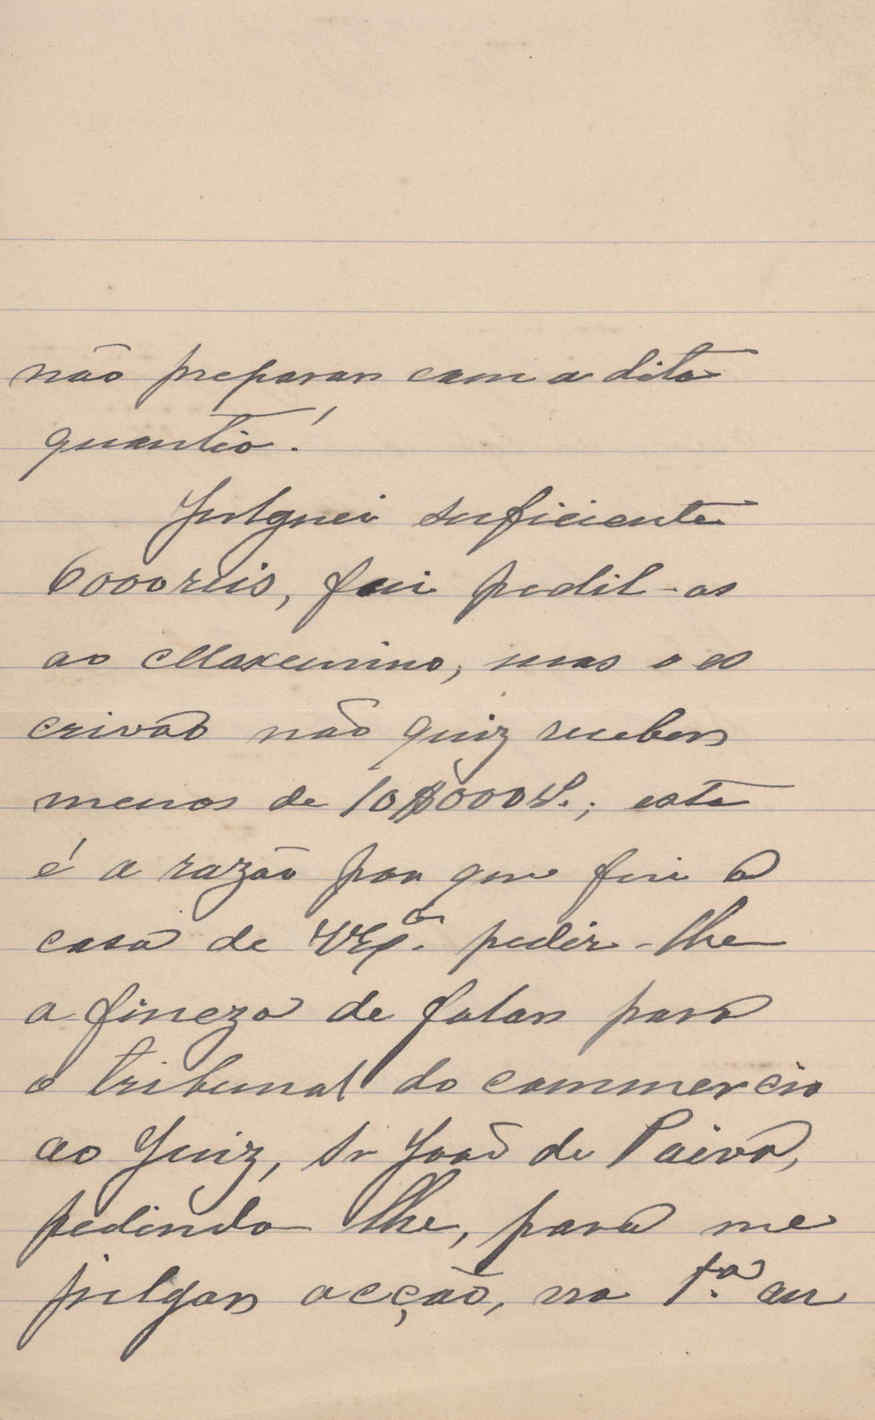 não preparar com a dita
quantia!
Julguei suficiente
6000 reis, fui pedil-os
ao Maxemino, mas o es
crivão não quiz receber
menos de 10$000 rs.; esta
é a razão por que fui a
casa de VExª. pedir-lhe
a fineza de falar para
o tribunal do commercio
ao Juiz, Sr João de Paiva,
pedindo lhe, para me
julgar acção, na 1.ª au